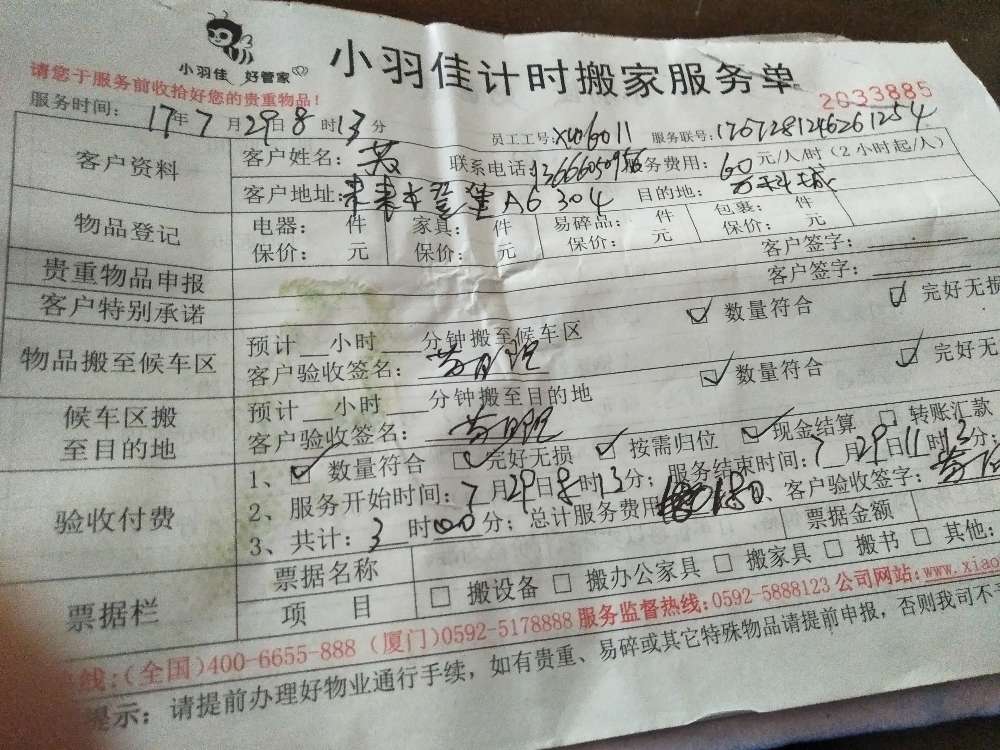 小羽佳 好管家
小羽佳计时搬家服务单
请您于服务前收拾好您的贵重物品!
2033885
服务时间: 17年7月29日8时13分
员工工号: 服务联号:
客户资料
客户姓名: 黄 联系电话: 服务费用: 60元/人/时(2小时起/人)
客户地址: A6 304 目的地:
物品登记
电器: 件 家具: 件 易碎品: 件 包裹: 件
保价: 元 保价: 元 保价: 元 保价: 元
贵重物品申报
客户签字:
客户特别承诺
客户签字:
物品搬至候车区
预计__小时___分钟搬至候车区 ☑ 数量符合 ☑ 完好无损
客户验收签名:
候车区搬至目的地
预计__小时___分钟搬至目的地 ☑ 数量符合 ☑ 完好无
客户验收签名:
验收付费
1、☑ 数量符合 ☑ 完好无损 ☑ 按需归位 ☑ 现金结算 □ 转账汇款
2、服务开始时间: 7月29日8时13分; 服务结束时间: 7月29日11时13分;
3、共计: 3时00分; 总计服务费用 180、客户验收签字:
票据栏
票据名称 票据金额
项 目 □ 搬设备 □ 搬办公家具 □ 搬家具 □ 搬书 □ 其他:
线:(全国)400-6655-888 (厦门)0592-5178888 服务监督热线:0592-5888123 公司网站:www.xiao
提示: 请提前办理好物业通行手续, 如有贵重、易碎或其它特殊物品请提前申报, 否则我司不